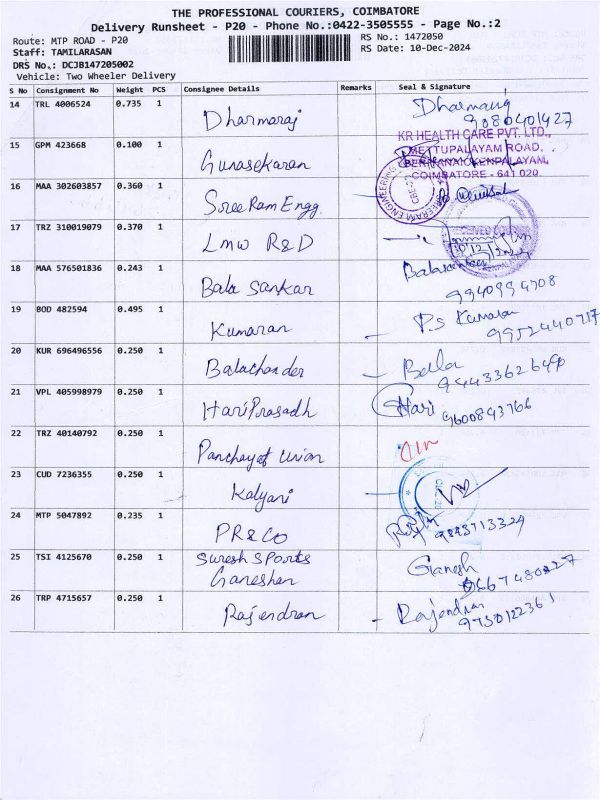 THE PROFESSIONAL COURIERS, COIMBATORE
Delivery Runsheet - P20 - Phone No.:0422-3505555 - Page No.:2
Route: MTP ROAD - P20
RS No.: 1472050
Staff: TAMILARASAN
RS Date: 10-Dec-2024
DRS No.: DCJB147205002
Vehicle: Two Wheeler Delivery
S No Consignment No Weight PCS Consignee Details Remarks Seal & Signature
14 TRL 4006524 0.735 1 Dharmaraj Dharmaraj
9080401427
KR HEALTH CARE PVT. LTD.,
15 GPM 423668 0.100 1 Gunasekaran METTUPALAYAM ROAD,
COIMBATORE - 641 020.
16 MAA 302603857 0.360 1 Sree Ram Engg
17 TRZ 310019079 0.370 1 LMW R&D
18 MAA 576501836 0.243 1 Bala Sankar
9940994708
19 BOD 482594 0.495 1 Kumaran P.S Kumaran
9952440717
20 KUR 696496556 0.250 1 Balachander Bala
9443362640
21 VPL 405998979 0.250 1 HariPrasadh Hari
9600893766
22 TRZ 40140792 0.250 1 Panchayat union
23 CUD 7236355 0.250 1 Kalyani
24 MTP 5047892 0.235 1 PR&CO
9843713324
25 TSI 4125670 0.250 1 Suresh Sports Ganesh
Ganeshan
26 TRP 4715657 0.250 1 Rajendran Rajendran
9750122361